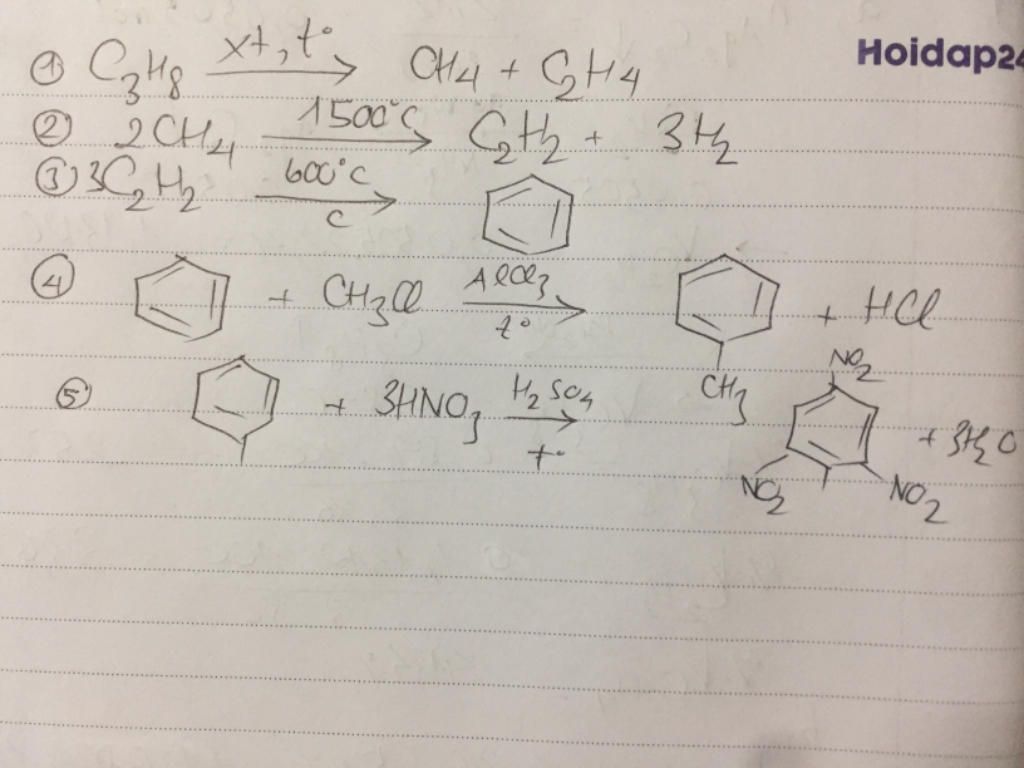 Hoidap24
① C3H8 xt, t° → CH4 + C2H4
② 2CH4 1500°C → C2H2 + 3H2
③ 3C2H2 600°C C →
④ + CH3Cl AlCl3 t° → CH3 + HCl
⑤ + 3HNO3 H2SO4 t° → NO2 NO2 NO2 + 3H2O